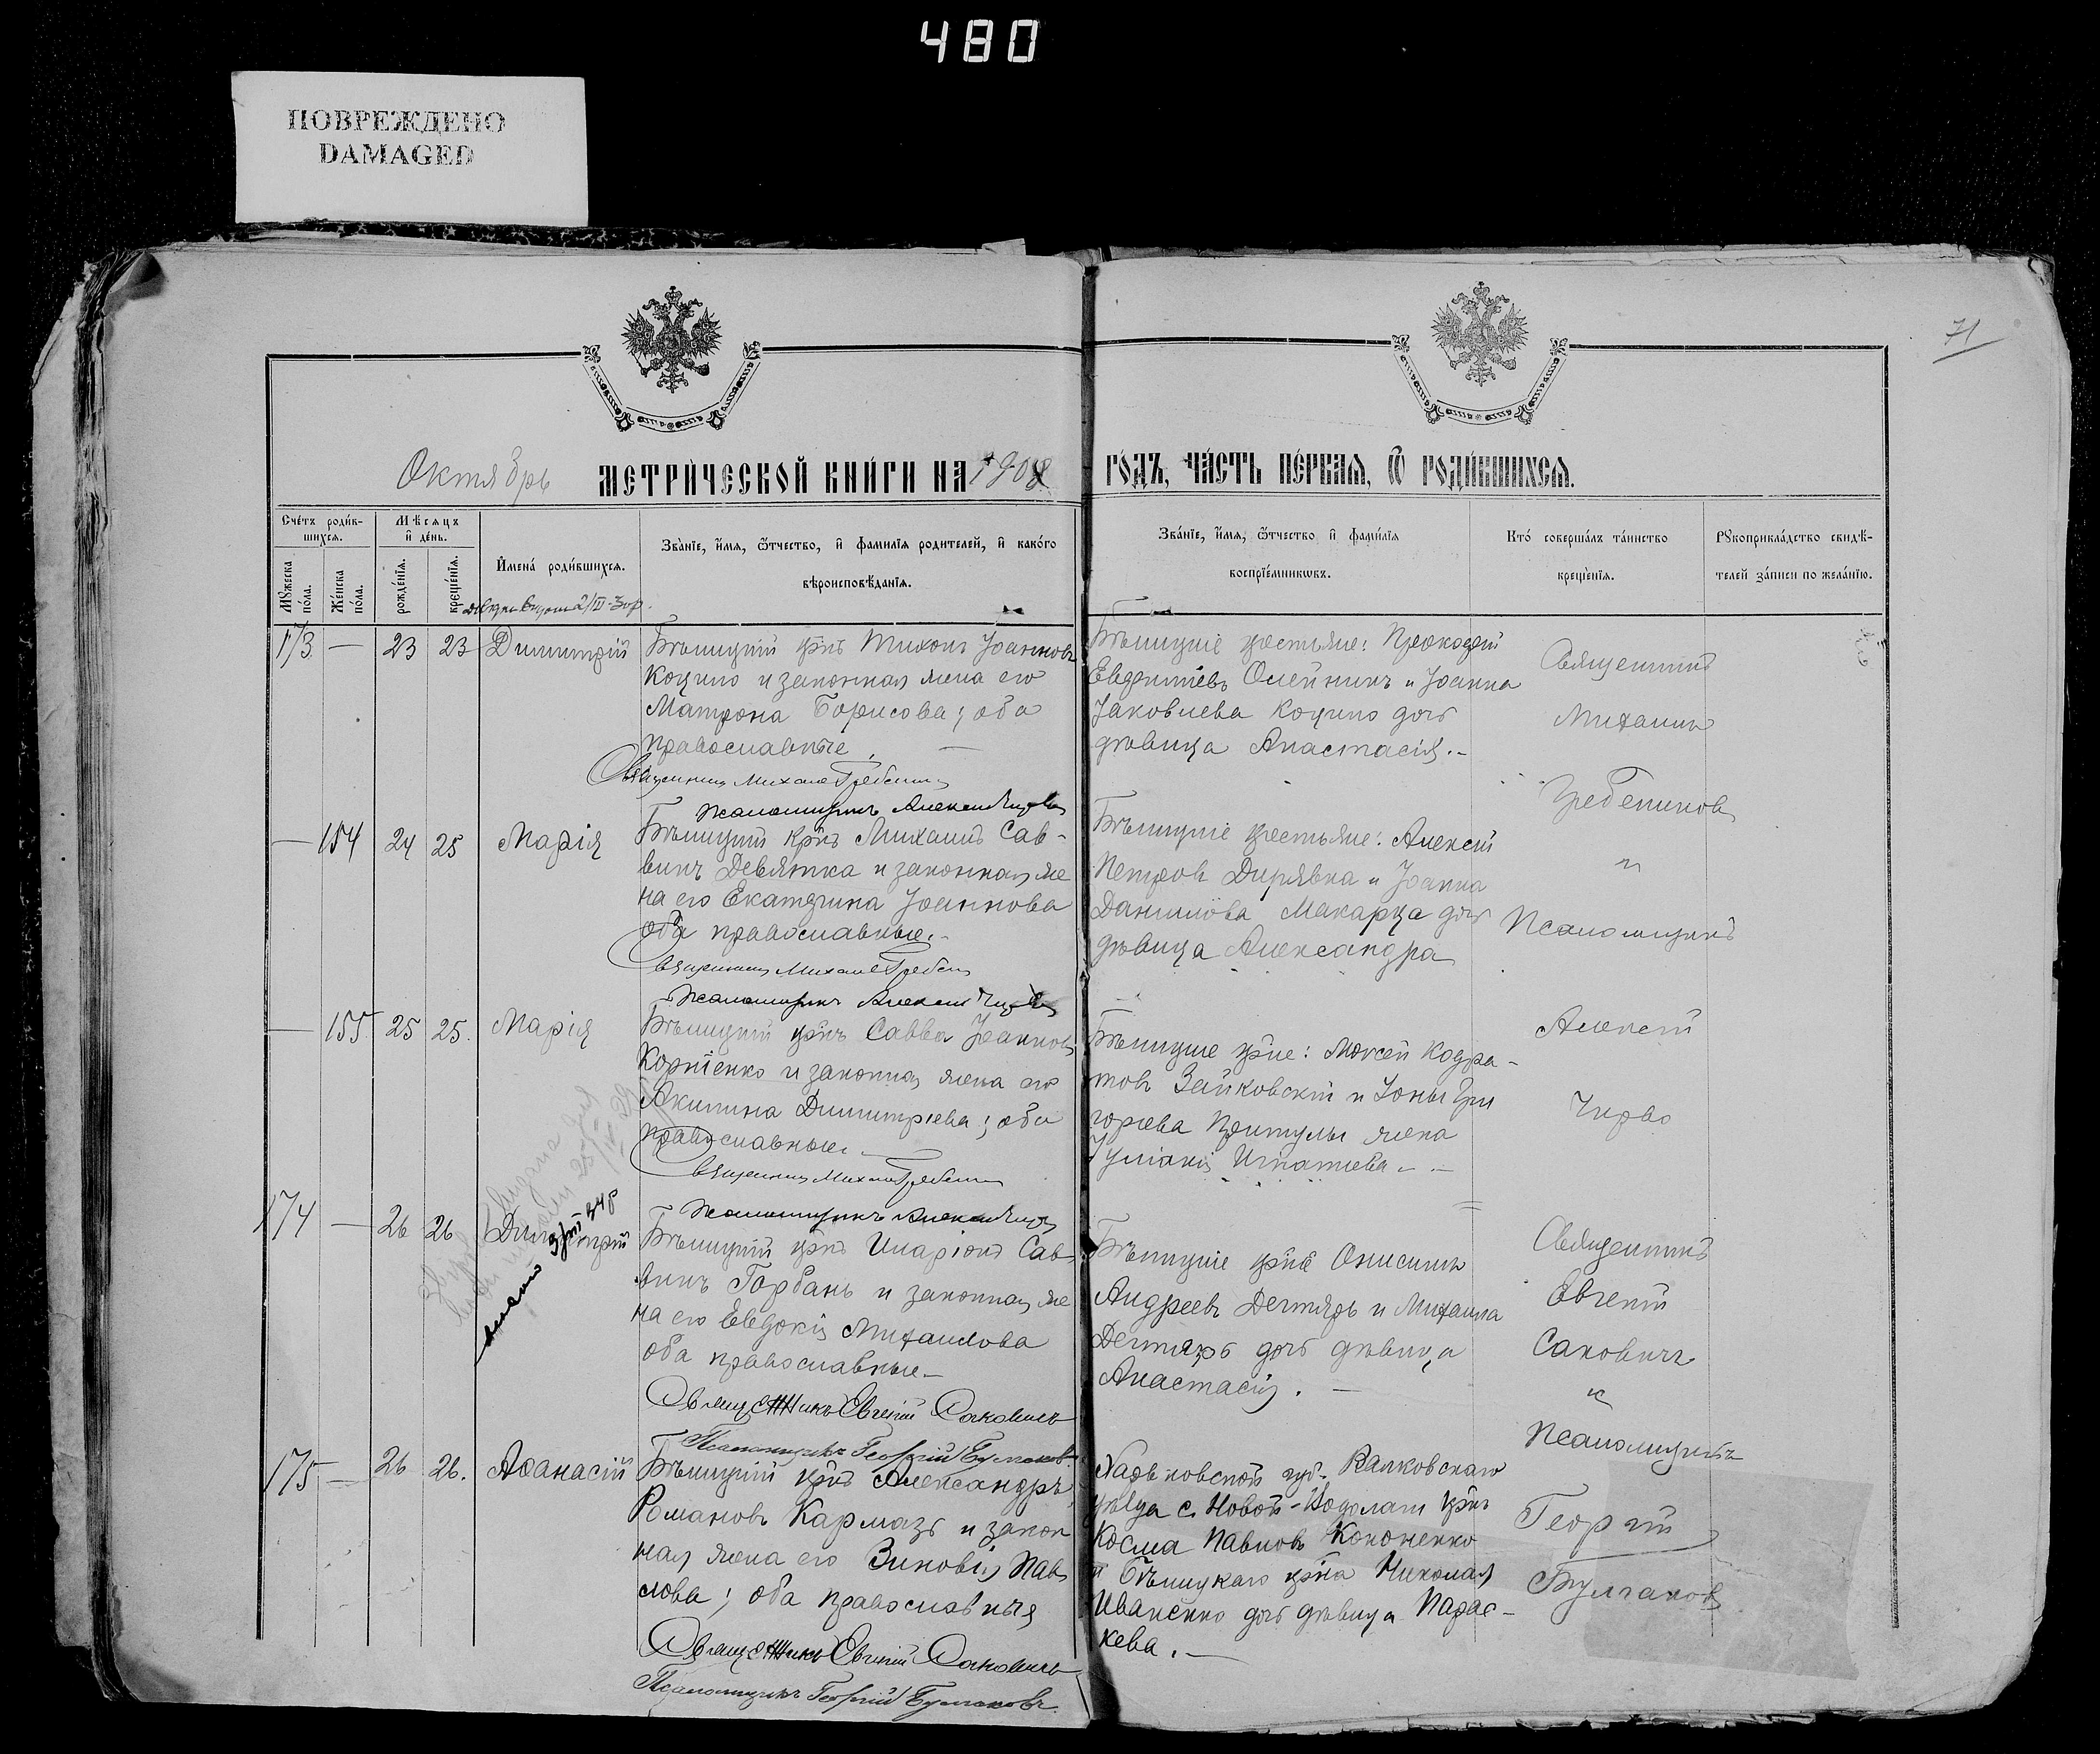 480
ПОВРЕЖДЕНО
DAMAGED
71
Октябрь МЕТРИЧЕСКОЙ КНИГИ НА 1908 ГОДЪ, ЧАСТЬ ПЕРВАЯ, Ѿ РОДИВШИХСЯ.
Счетъ родив-
шихся.
Мѣсяцъ
и день.
Мужеска
пола.
Женска
пола.
рожденія.
крещенія.
Имена родившихся.
Званіе, имя, ѿтчество, и фамилія родителей, и какого
вѣроисповѣданія.
Званіе, имя, ѿтчество и фамилія
воспріемниковъ.
Кто совершалъ таинство
крещенія.
Рукоприкладство свидѣ-
телей записи по желанію.
173 — 23 23 Димитрій
Бѣлицкій крнъ Тихонъ Іоанновъ
Коцило и законная жена его
Матрона Борисова; оба
православные. —
Священникъ Михаилъ
Псаломщикъ Алексій
Бѣлицкіе крестьяне: Прокофій
Олейникъ и Іоанна
Іаковлева Коцило дочь
дѣвица Анастасія.-
Священникъ
Михаилъ
Гребениковъ
— 154 24 25 Марія
Бѣлицкій крнъ Михаилъ Сав-
винъ Девятка и законная же
на его Екатерина Іоаннова
оба православные.-
Священникъ Михаилъ
Псаломщикъ Алексій
Бѣлицкіе крестьяне: Алексій
Петровъ Дирявка и Іоанна
Данилова Макарца дочь
дѣвица Александра
"
Псаломщикъ
— 155 25 25. Марія
Бѣлицкій крнъ Савва Іоанновъ
Корніенко и законная жена его
Акилина Димитріева; оба
православные. —
Священникъ Михаилъ
Псаломщикъ Алексій
Бѣлицкіе крне: Моѵсей Кодра-
товъ Зайковскій и Іоны Гри
горіева Притулы жена
Іуліанія Игнатіева. —
Алексій
Чирво
174 — 26 26 Димитрій
Бѣлицкій крнъ Иларіонъ Сав
винъ Горбань и законная же
на его Евдокія Михаилова
оба православные.—
Священникъ Евгеній Саковичъ
Псаломщикъ Георгій Булгаковъ
Бѣлицкіе крне Онисимъ
Андреевъ Дегтярь и Михаила
Дегтярь дочь дѣвица
Анастасія. —
Священникъ
Евгеній
Саковичъ
"
Псаломщикъ
175 — 26 26. Аѳанасій
Бѣлицкій крнъ Александръ
Романовъ Кармазь и закон
ная жена его Зиновія Пав
лова; оба православныя
Священникъ Евгеній Саковичъ
Псаломщикъ Георгій Булгаковъ
Харьковской губ. Валковскаго
уѣзда с. Новой-Водолаги крнъ
Косма Павловъ Кононенко
и Бѣлицкаго крна Николая
Иваненко дочь дѣвица Парас-
кева. —
Георгій
Булгаковъ